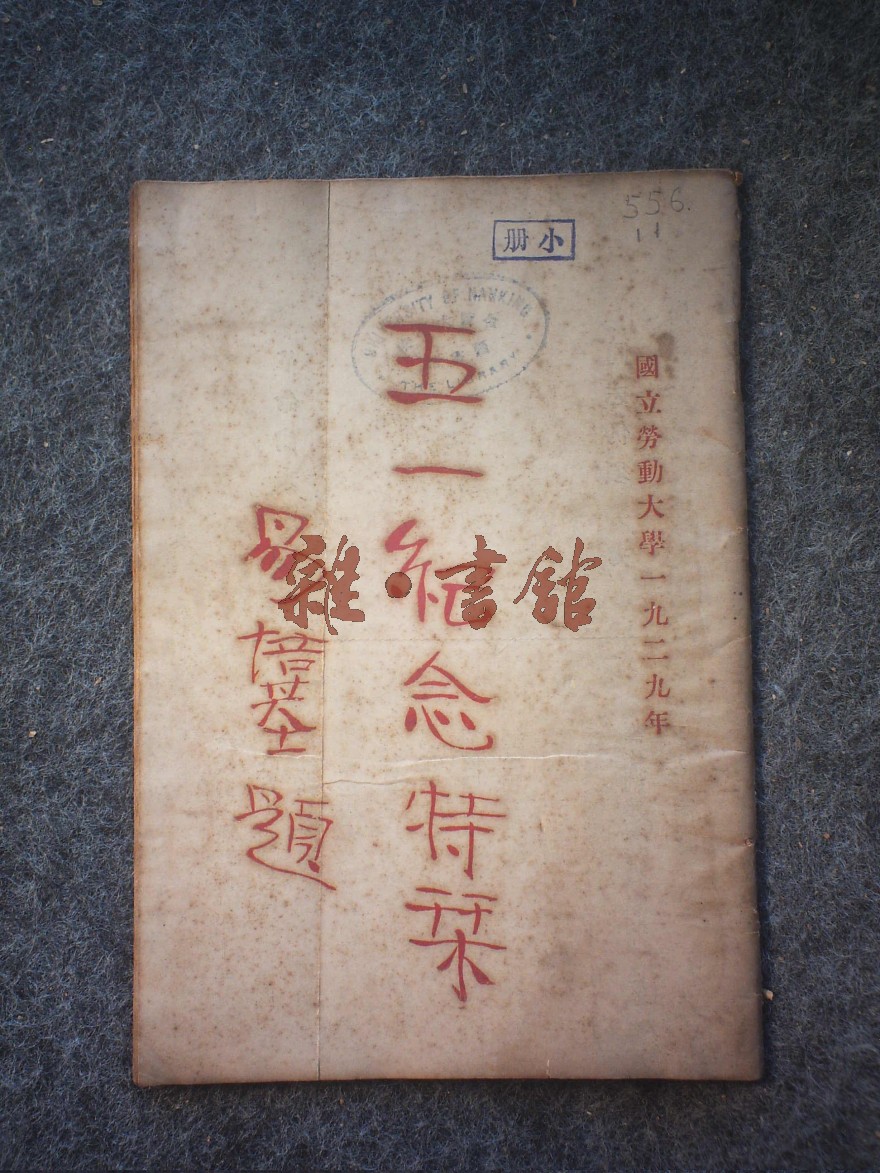 556.
11
小册
UNIVERSITY OF NANKING
THE LIBRARY
國立勞動大學一九二九年
五一紀念特栞
易培基題
雜·書館